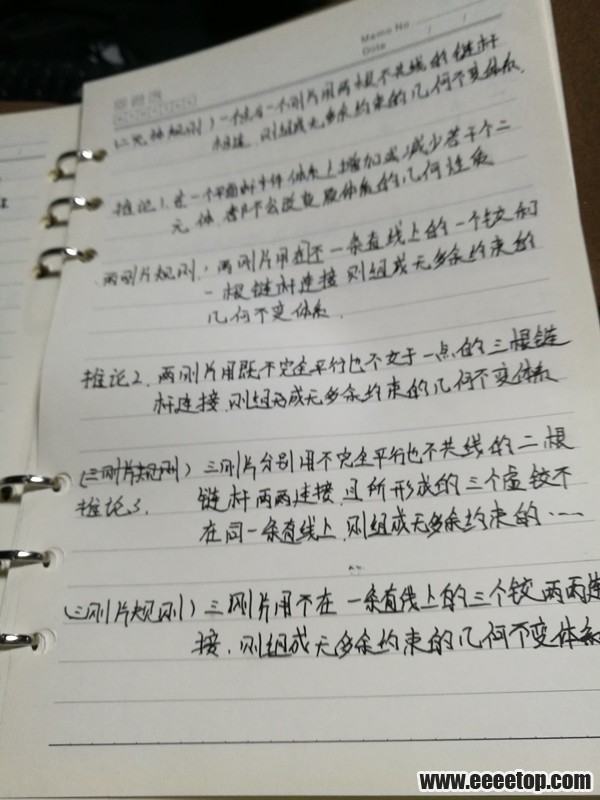 Memo No.
Date / /
(二元体规则) 一个点与一个刚片用两根不共线的链杆
相连,则组成无多余约束的几何不变体系.
推论1.在一个平面杆件体系上增加或减少若干个二
元体,都不会改变原体系的几何性质
两刚片规则.两刚片用在不一条直线上的一个铰和
一根链杆连接,则组成无多余约束的
几何不变体系.
推论2.两刚片用既不完全平行也不交于一点的三根链
杆连接,则组成无多余约束的几何不变体系
(三刚片规则) 三刚片分别用不完全平行也不共线的二根
推论3. 链杆两两连接,且所形成的三个虚铰不
在同一条直线上,则组成无多余约束的....
(三刚片规则) 三刚片用不在一条直线上的三个铰两两连
接,则组成无多余约束的几何不变体系
www.eeeetop.com